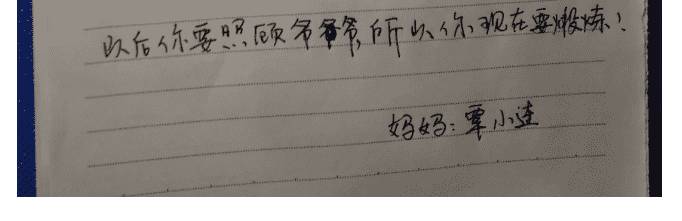 以后你要照顾爷爷爷,所以你现在要煅炼!
妈妈:覃小连